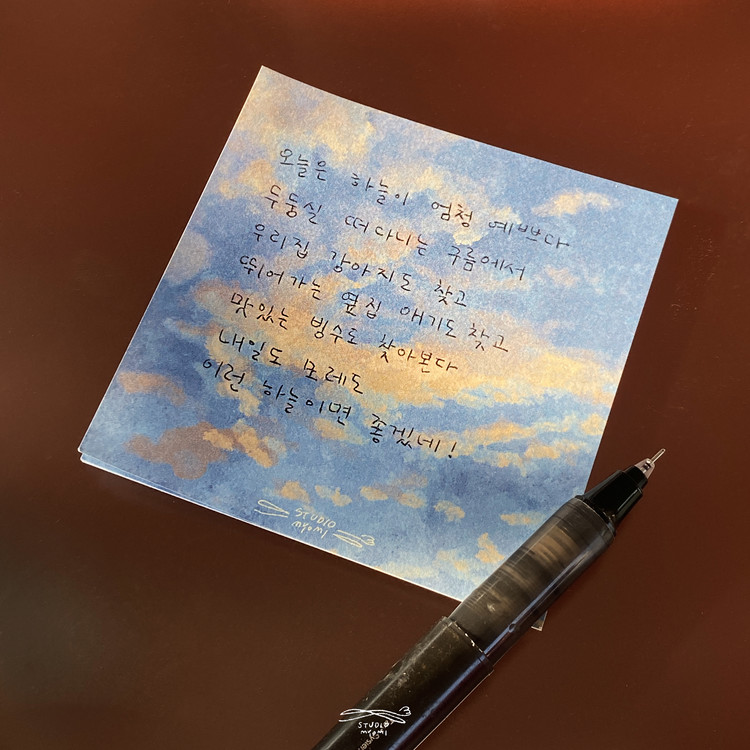 오늘은 하늘이 엄청 예쁘다
두둥실 떠다니는 구름에서
우리집 강아지도 찾고
뛰어가는 옆집 애기도 찾고
맛있는 빙수도 찾아본다
내일도 모레도
이런 하늘이면 좋겠네!
STUDIO
myomi
STUDIO
myomi